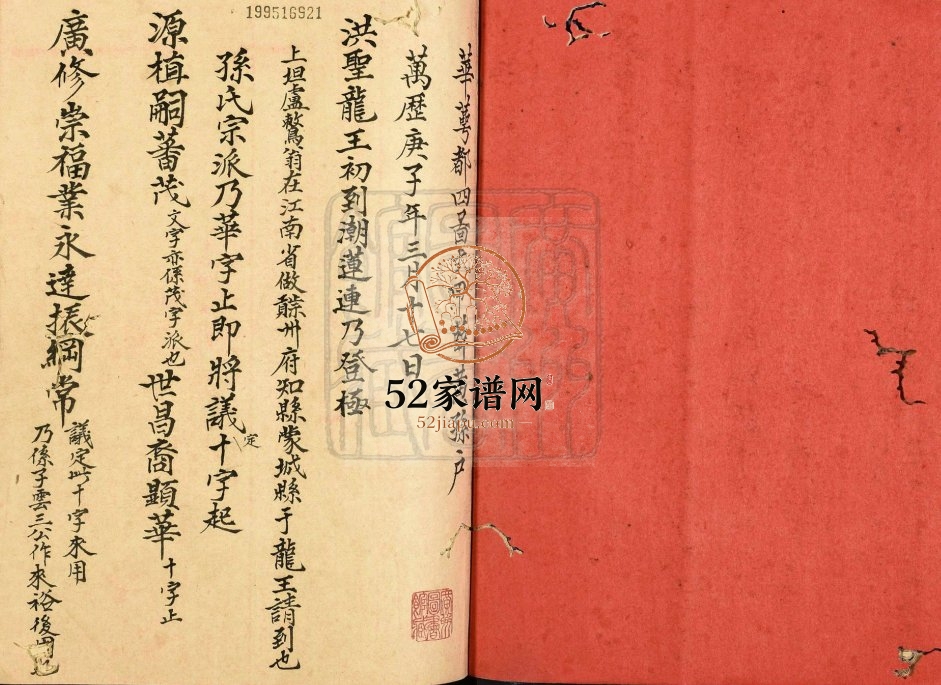 199516921
華萼都四啚十四
孫户
萬歷庚子年三月十七日
洪聖龍王初到潮蓮連乃登極
上坦盧鷔翁在江南省做
州府知縣蒙城縣于龍王請到也
孫氏宗派乃華字止即將議定十字起
源植嗣蕃茂文字亦係茂字派也世昌裔顯華十字止
廣修崇福業永達振綱常
議定此十字來用
乃係子雲三公作來裕後
52家谱网
52jiapu.com